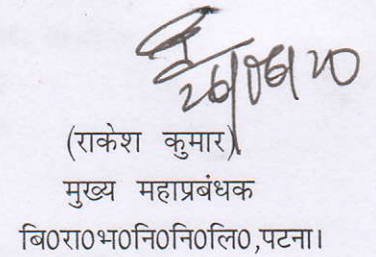 26/06/20
(राकेश कुमार)
मुख्य महाप्रबंधक
बि0रा0भ0नि0नि0लि0,पटना।